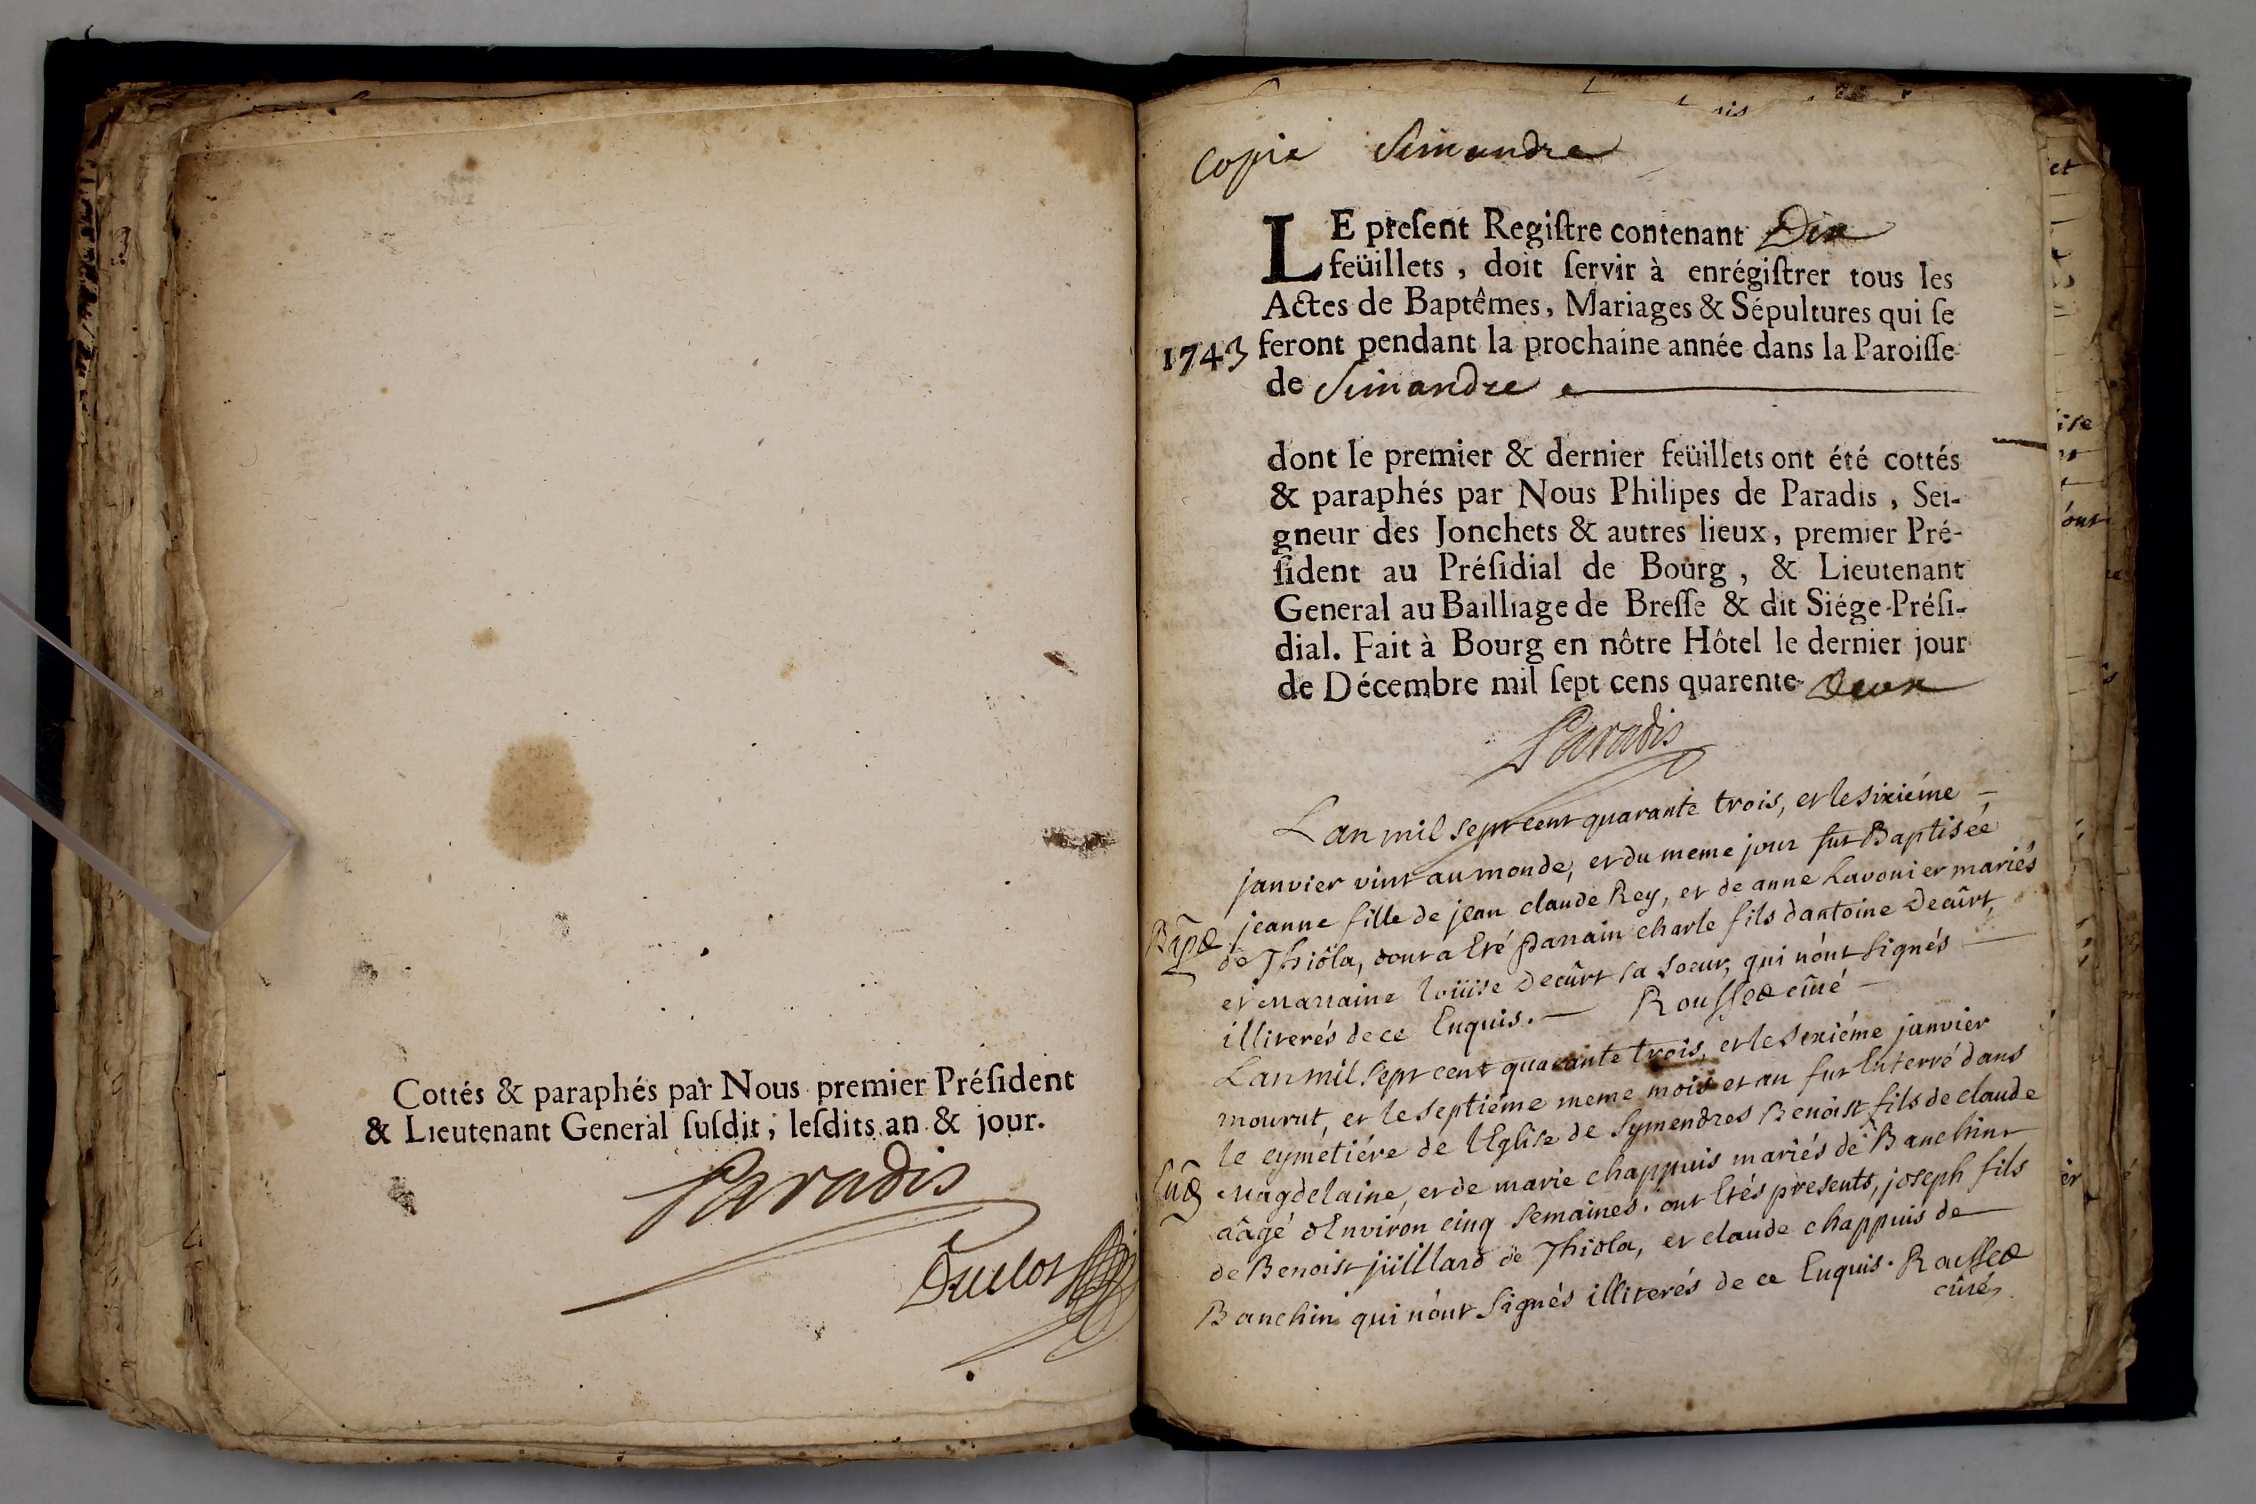 Cottés & paraphés par Nous premier Préſident
& Lieutenant General ſuſdit, leſdits an & jour.
Paradis
Copie Simandre
LE preſent Regiſtre contenant Dix
feüillets, doit ſervir à enrégiſtrer tous les
Actes de Baptêmes, Mariages & Sépultures qui ſe
1743 feront pendant la prochaine année dans la Paroiſſe
de Simandre
dont le premier & dernier feüillets ont été cottés
& paraphés par Nous Philipes de Paradis, Sei-
gneur des Jonchets & autres lieux, premier Pré-
ſident au Préſidial de Bourg, & Lieutenant
General au Bailliage de Breſſe & dit Siége Préſi-
dial. Fait à Bourg en nôtre Hôtel le dernier jour
de Décembre mil ſept cens quarente deux
Paradis
Lan mil sept cent quarante trois, et le sixiéme
janvier vint au monde, et du meme jour fut Baptisée
jeanne fille de jean claude Rey, et de anne Lavonier mariés
de Thiola, dont a Eté parrain charle fils dantoine Decûrt
et marraine loüise Decûrt sa soeur, qui nónt signés
illiterés de ce Enquis. Roussed cûré
Lan mil sept cent quarante trois, et le sixiéme janvier
mourut, et le septiéme meme mois et an fut Enterré dans
le cymétiére de lEglise de Symendres Benoist fils de claude
Magdelaine, et de marie chappuis mariés de Banchin
aâgé dEnviron cinq semaines. ont Etés presents, joseph fils
de Benoist jüilllard de Thiola, et claude chappuis de
Banchin qui nónt signés illiterés de ce Enquis. Roussed
cûré